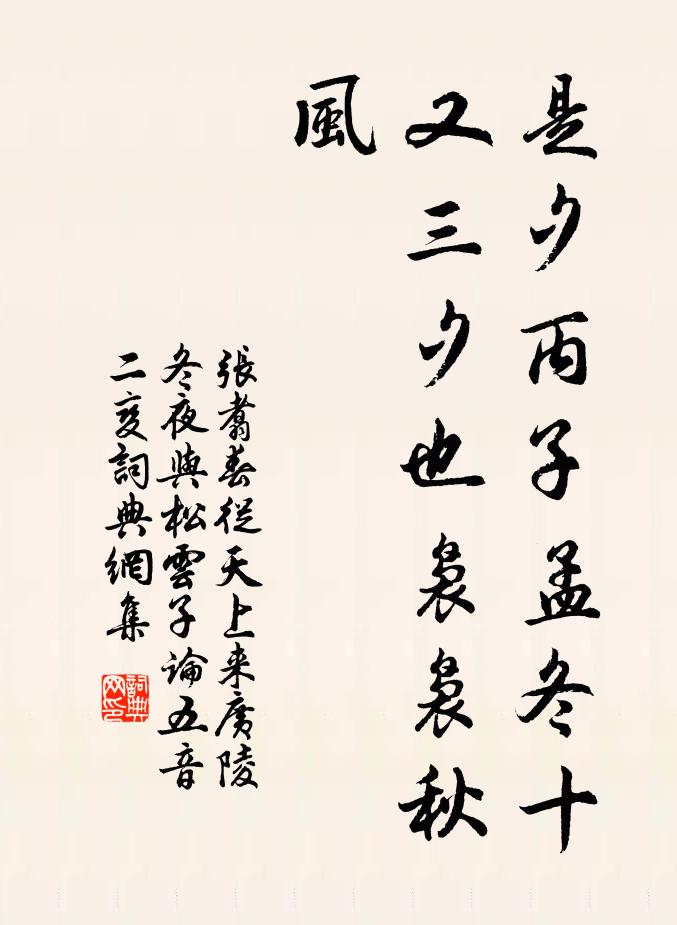 是夕丙子孟冬十
又三夕也袅袅秋
風
張翥春從天上来廣陵
冬夜與松雲子論五音
二变詞典網集
詞典网印